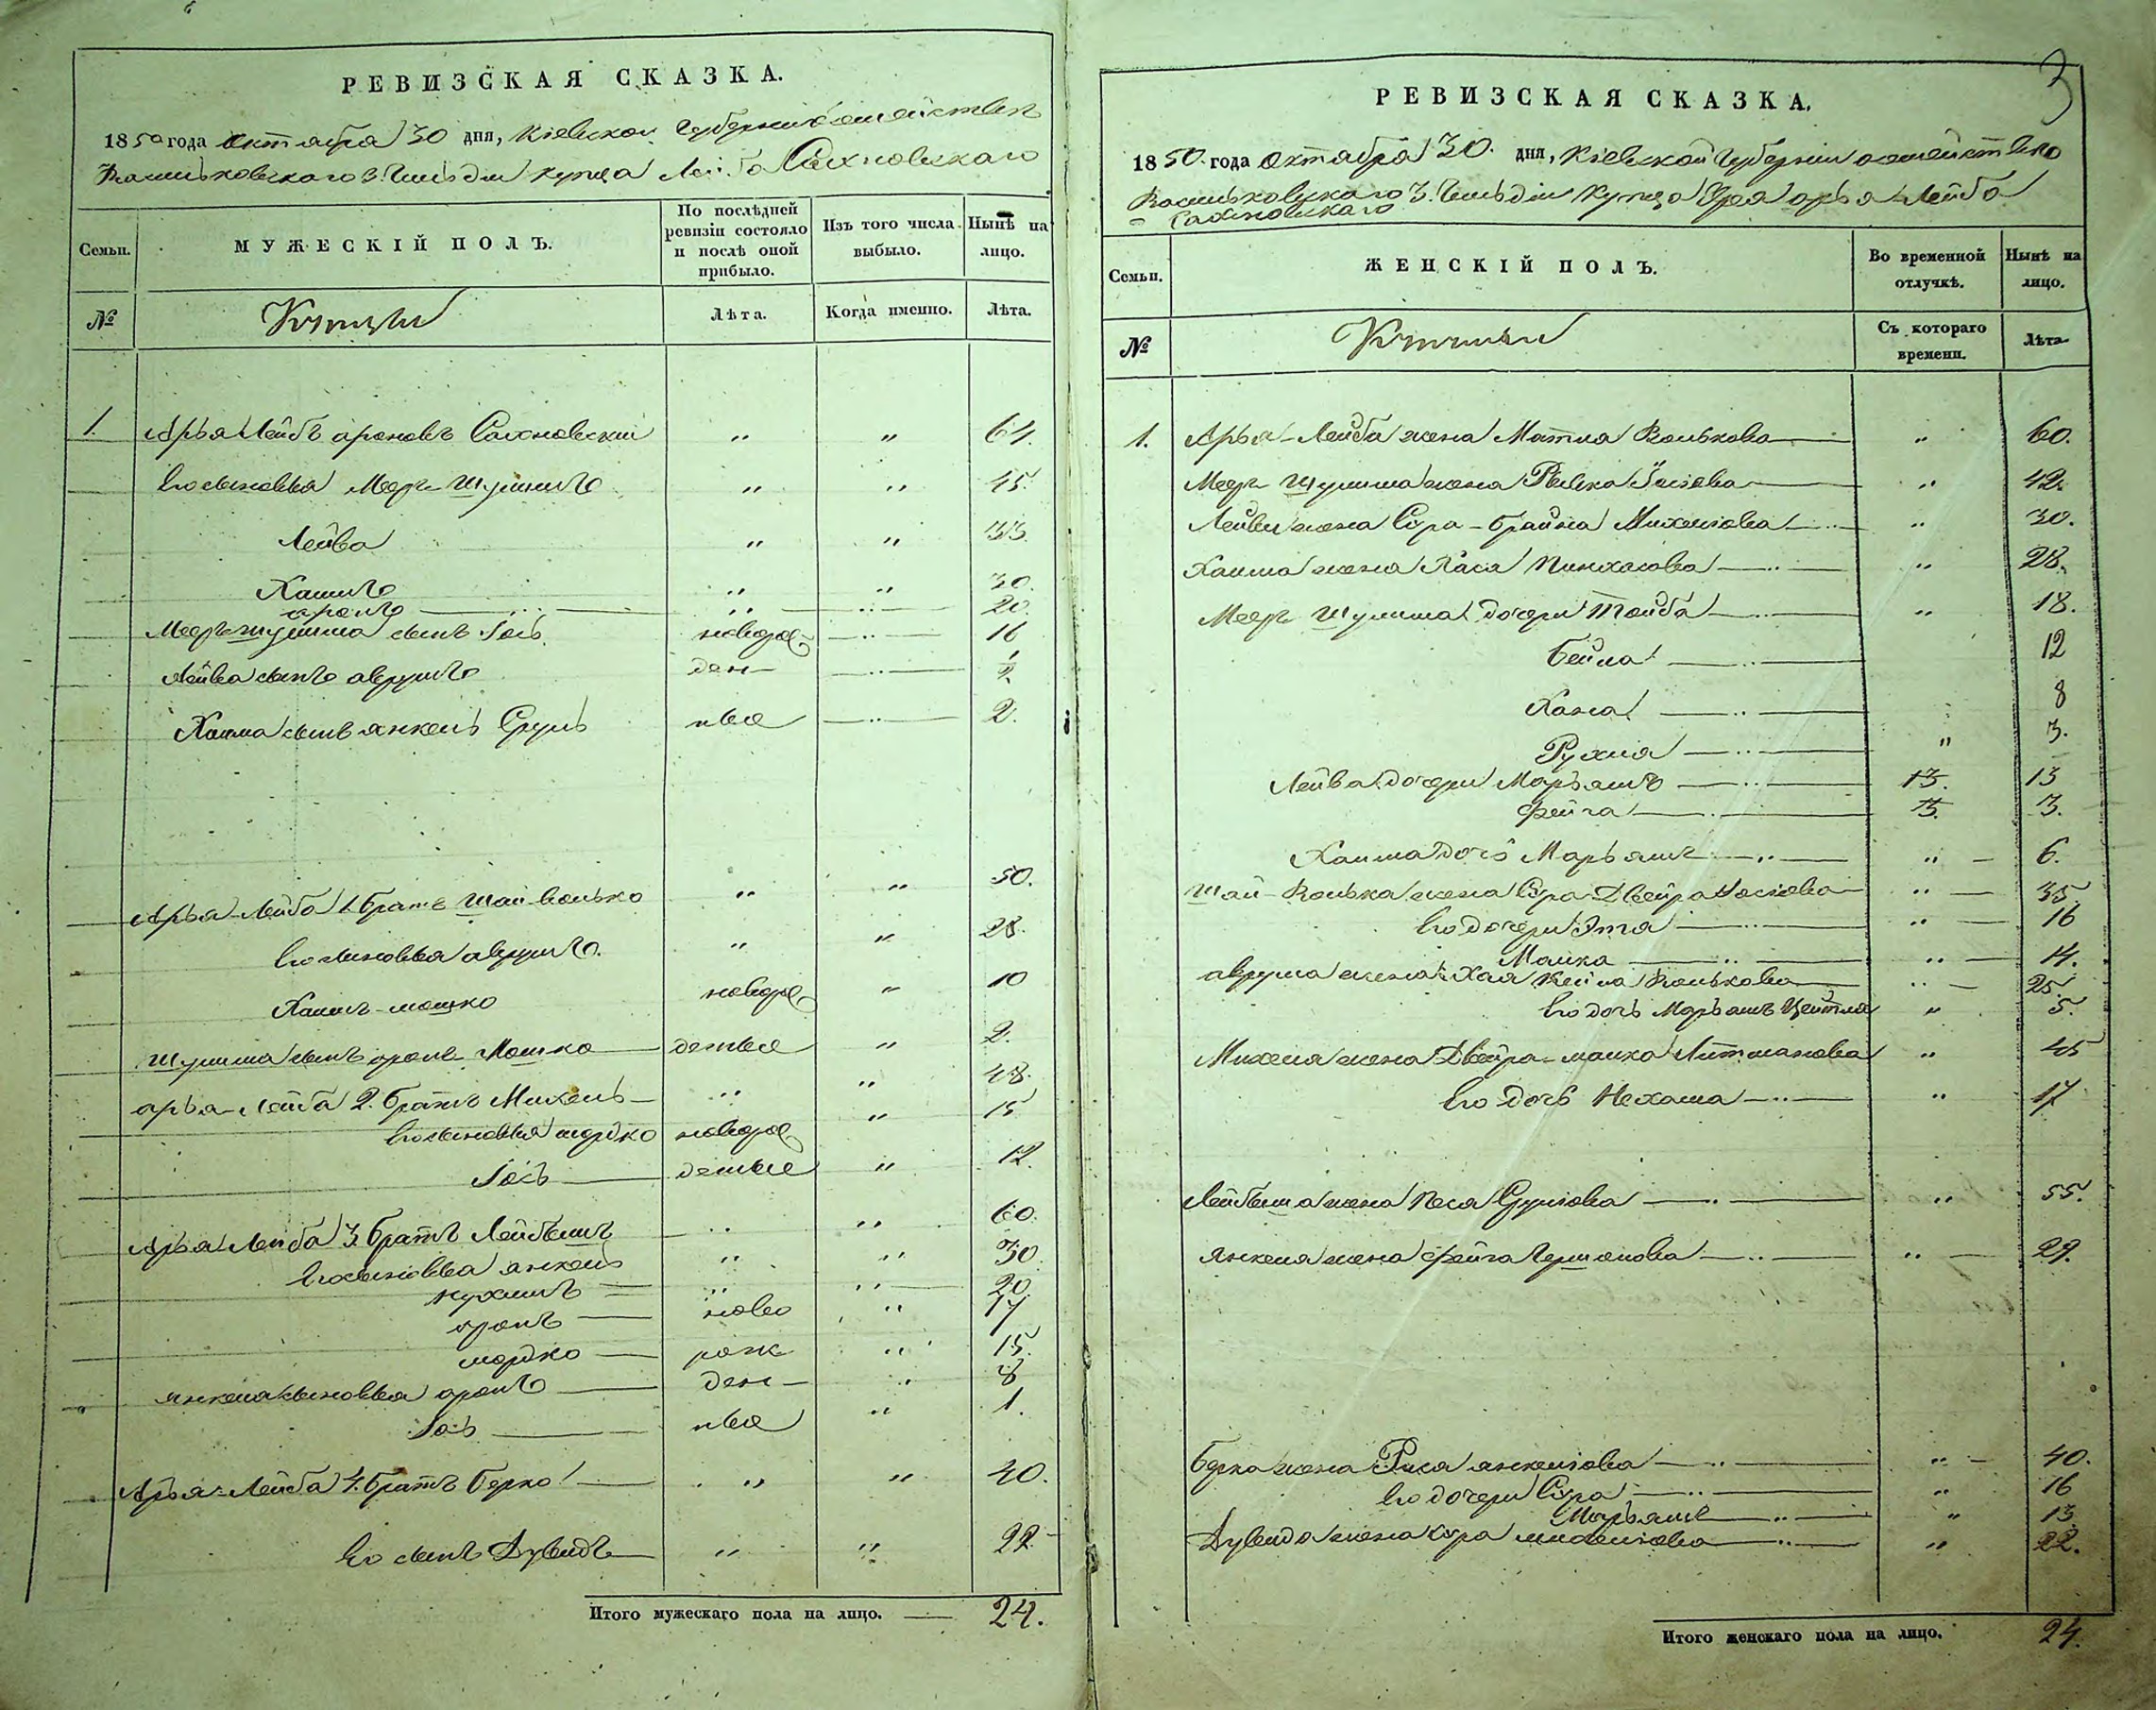 РЕВИЗСКАЯ СКАЗКА.
1850 года октября 30 дня, Кіевской Губерніи о семействе
Васильковскаго 3. Гильдіи купца Лейба Сахновскаго
Семьи.
МУЖЕСКІЙ ПОЛЪ.
По послѣдней ревизіи состояло и послѣ оной прибыло.
Изъ того числа выбыло.
Нынѣ на лицо.
№
Купцы
Лѣта.
Когда именно.
Лѣта.
1. Арья Лейбъ ароновъ Сахновскій " " 64.
Его сыновья Меер Шулимъ " " 45.
Лейва " " 33.
Хаимъ " " 30.
аронъ " " 20.
Меер шулима сынъ Іось новорож " 16
Лейва сынъ аврумъ ден " 1/2
Хаима сынъ янкель Сруль ные " 2.
Арья-Лейба 1. братъ Шай-волько " " 50.
Его сыновья аврумъ. " " 28.
Хаимъ-мошко новорож " 10
Шулима сынъ аронъ Мошко денные " 2.
арья-Лейба 2. братъ Михель " " 48.
Его сыновья мордко новорож " 15
Іось денные " 12.
Арья Лейба 3. братъ Лейбышъ " " 60.
Его сыновья янкель " " 30.
нухимъ " " 20.
аронъ ново " 17
мордко рож " 15.
янкеля сыновья аронъ ден " 8
Іось ные " 1.
Арья-Лейба 4. братъ Берко " " 40.
Его сынъ Дувидъ " " 22.
Итого мужескаго пола на лицо. 24.
3
РЕВИЗСКАЯ СКАЗКА.
1850. года октября 30. дня, Кіевской Губерніи о семействе
Васильковскаго 3. Гильдіи Купца арья Лейба
Сахновскаго
Семьи.
ЖЕНСКІЙ ПОЛЪ.
Во временной отлучкѣ.
Нынѣ на лицо.
№
Купчихи
Съ котораго времени.
Лѣта
1. Арья-Лейба жена Матля Волькова " 60.
Меер Шулима жена Ривка Іосіова " 42.
Лейви жена Сура-брайна Михелюва " 30.
Хаима жена Хася Пинхасова " 28.
Меер Шулима дочери Тойба " 18.
Бейла 12
Хана 8
Рухля " 3.
Лейва дочери Марьямъ 13. 13
Фейга 3. 3.
Хаима дочь Марьямъ " 6.
Шай-Волька жена Сура-Двейра Іосіова " 35.
Его дочери Эта " 16
Малка " 14.
аврума жена Хая Бейла Волькова " 25.
Его дочь Марьямъ Цейтля " 5.
Михеля жена Двейра-малка Литманова " 45
Его дочь Нехама " 17
Лейбыша жена Песя Срулова " 55.
янкеля жена фейга Гершонова " 29.
Берка жена Рися янкелюва " 40.
Его дочери Сура " 16
Марьямъ " 13
Дувида жена Сура михелюва " 22.
Итого женскаго пола на лицо. 24.